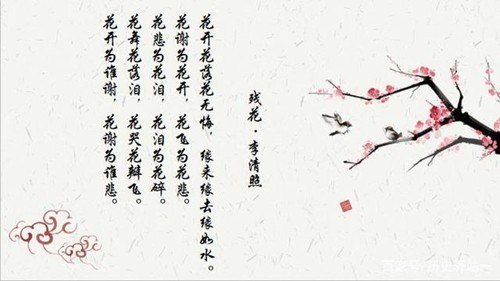 残花·李清照
花开花落花无悔，缘来缘去缘如水。
花谢为花开，花飞为花悲。
花悲为花泪，花泪为花碎。
花舞花落泪，花哭花瓣飞。
花开为谁谢，花谢为谁悲。
百家号